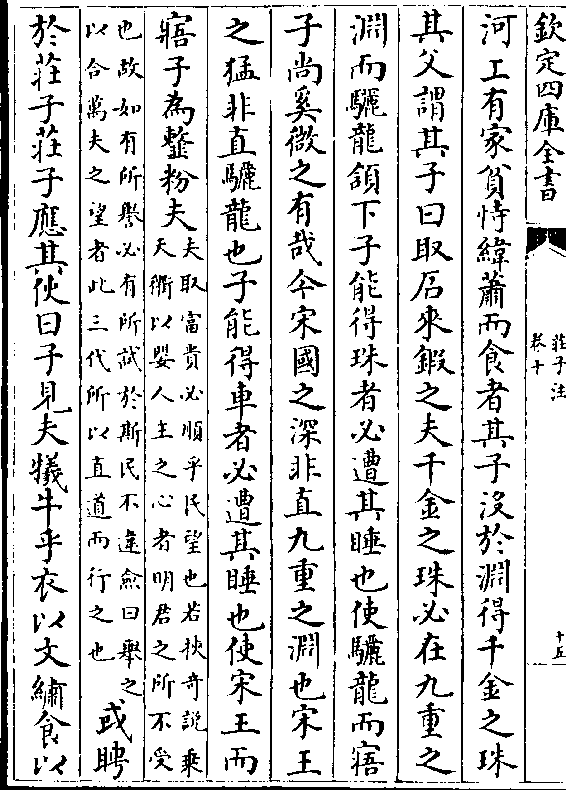 欽定四庫全書
莊子注
卷十
十五
河上有家貧恃緯蕭而食者其子沒於淵得千金之珠
其父謂其子曰取石來鍜之夫千金之珠必在九重之
淵而驪龍頷下子能得珠者必遭其睡也使驪龍而寤
子尚奚微之有哉今宋國之深非直九重之淵也宋王
之猛非直驪龍也子能得車者必遭其睡也使宋王而
寤子為韲粉夫
夫取富貴必順乎民望也若挾奇說乗
天衢以嬰人主之心者明君之所不受
也故如有所譽必有所試於斯民不違僉曰舉之
以合萬夫之望者此三代所以直道而行之也
或聘
於莊子莊子應其使曰子見夫犧牛乎衣以文繡食以